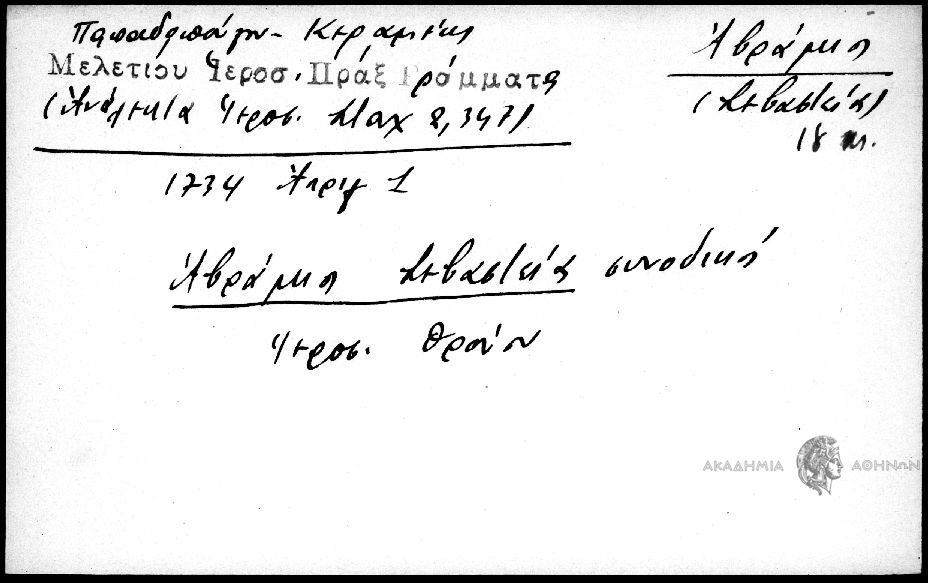 Παπαδοπούλου - Κεραμέως
Μελετίου Ἱεροσ. Πράξ Γράμματα
(Ἀνάλεκτα Ἱεροσ. Σταχ 2, 347)
Ἀβράμιος
(Σεβαστείας)
18 αι.
1734 Ἀπριλ 1
Ἀβράμιος Σεβαστείας συνοδικοῦ
Ἱεροσ. Θρόνου
ΑΚΑΔΗΜΙΑ ΑΘΗΝΩΝ